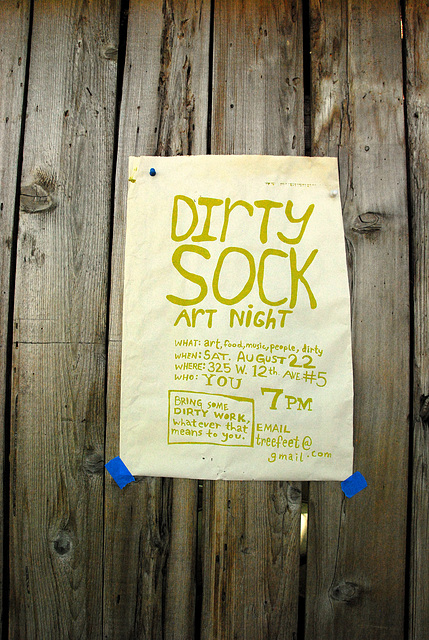 DIrTY
SOCK
ArT NiGhT
WHAT: art, food, music, people, dirty
WHEN: SAT. AUGUST 22
WHERE: 325 W. 12th AVE #5
WHO: YOU
7PM
BRING SOME
DIRTY WORK,
whatever that
means to you.
EMAIL
treefeet@
gmail.com